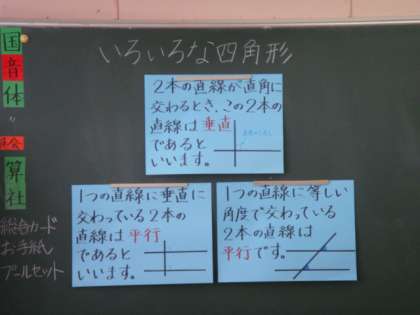 いろいろな四角形
国
音
体
〃
算
社
お手紙
プールセット
2本の直線が直角に
交わるとき、この2本の
直線は垂直
であると
いいます。
1つの直線に垂直に
交わっている2本の
直線は平行
であると
いいます。
1つの直線に等しい
角度で交わっている
2本の直線は
平行です。